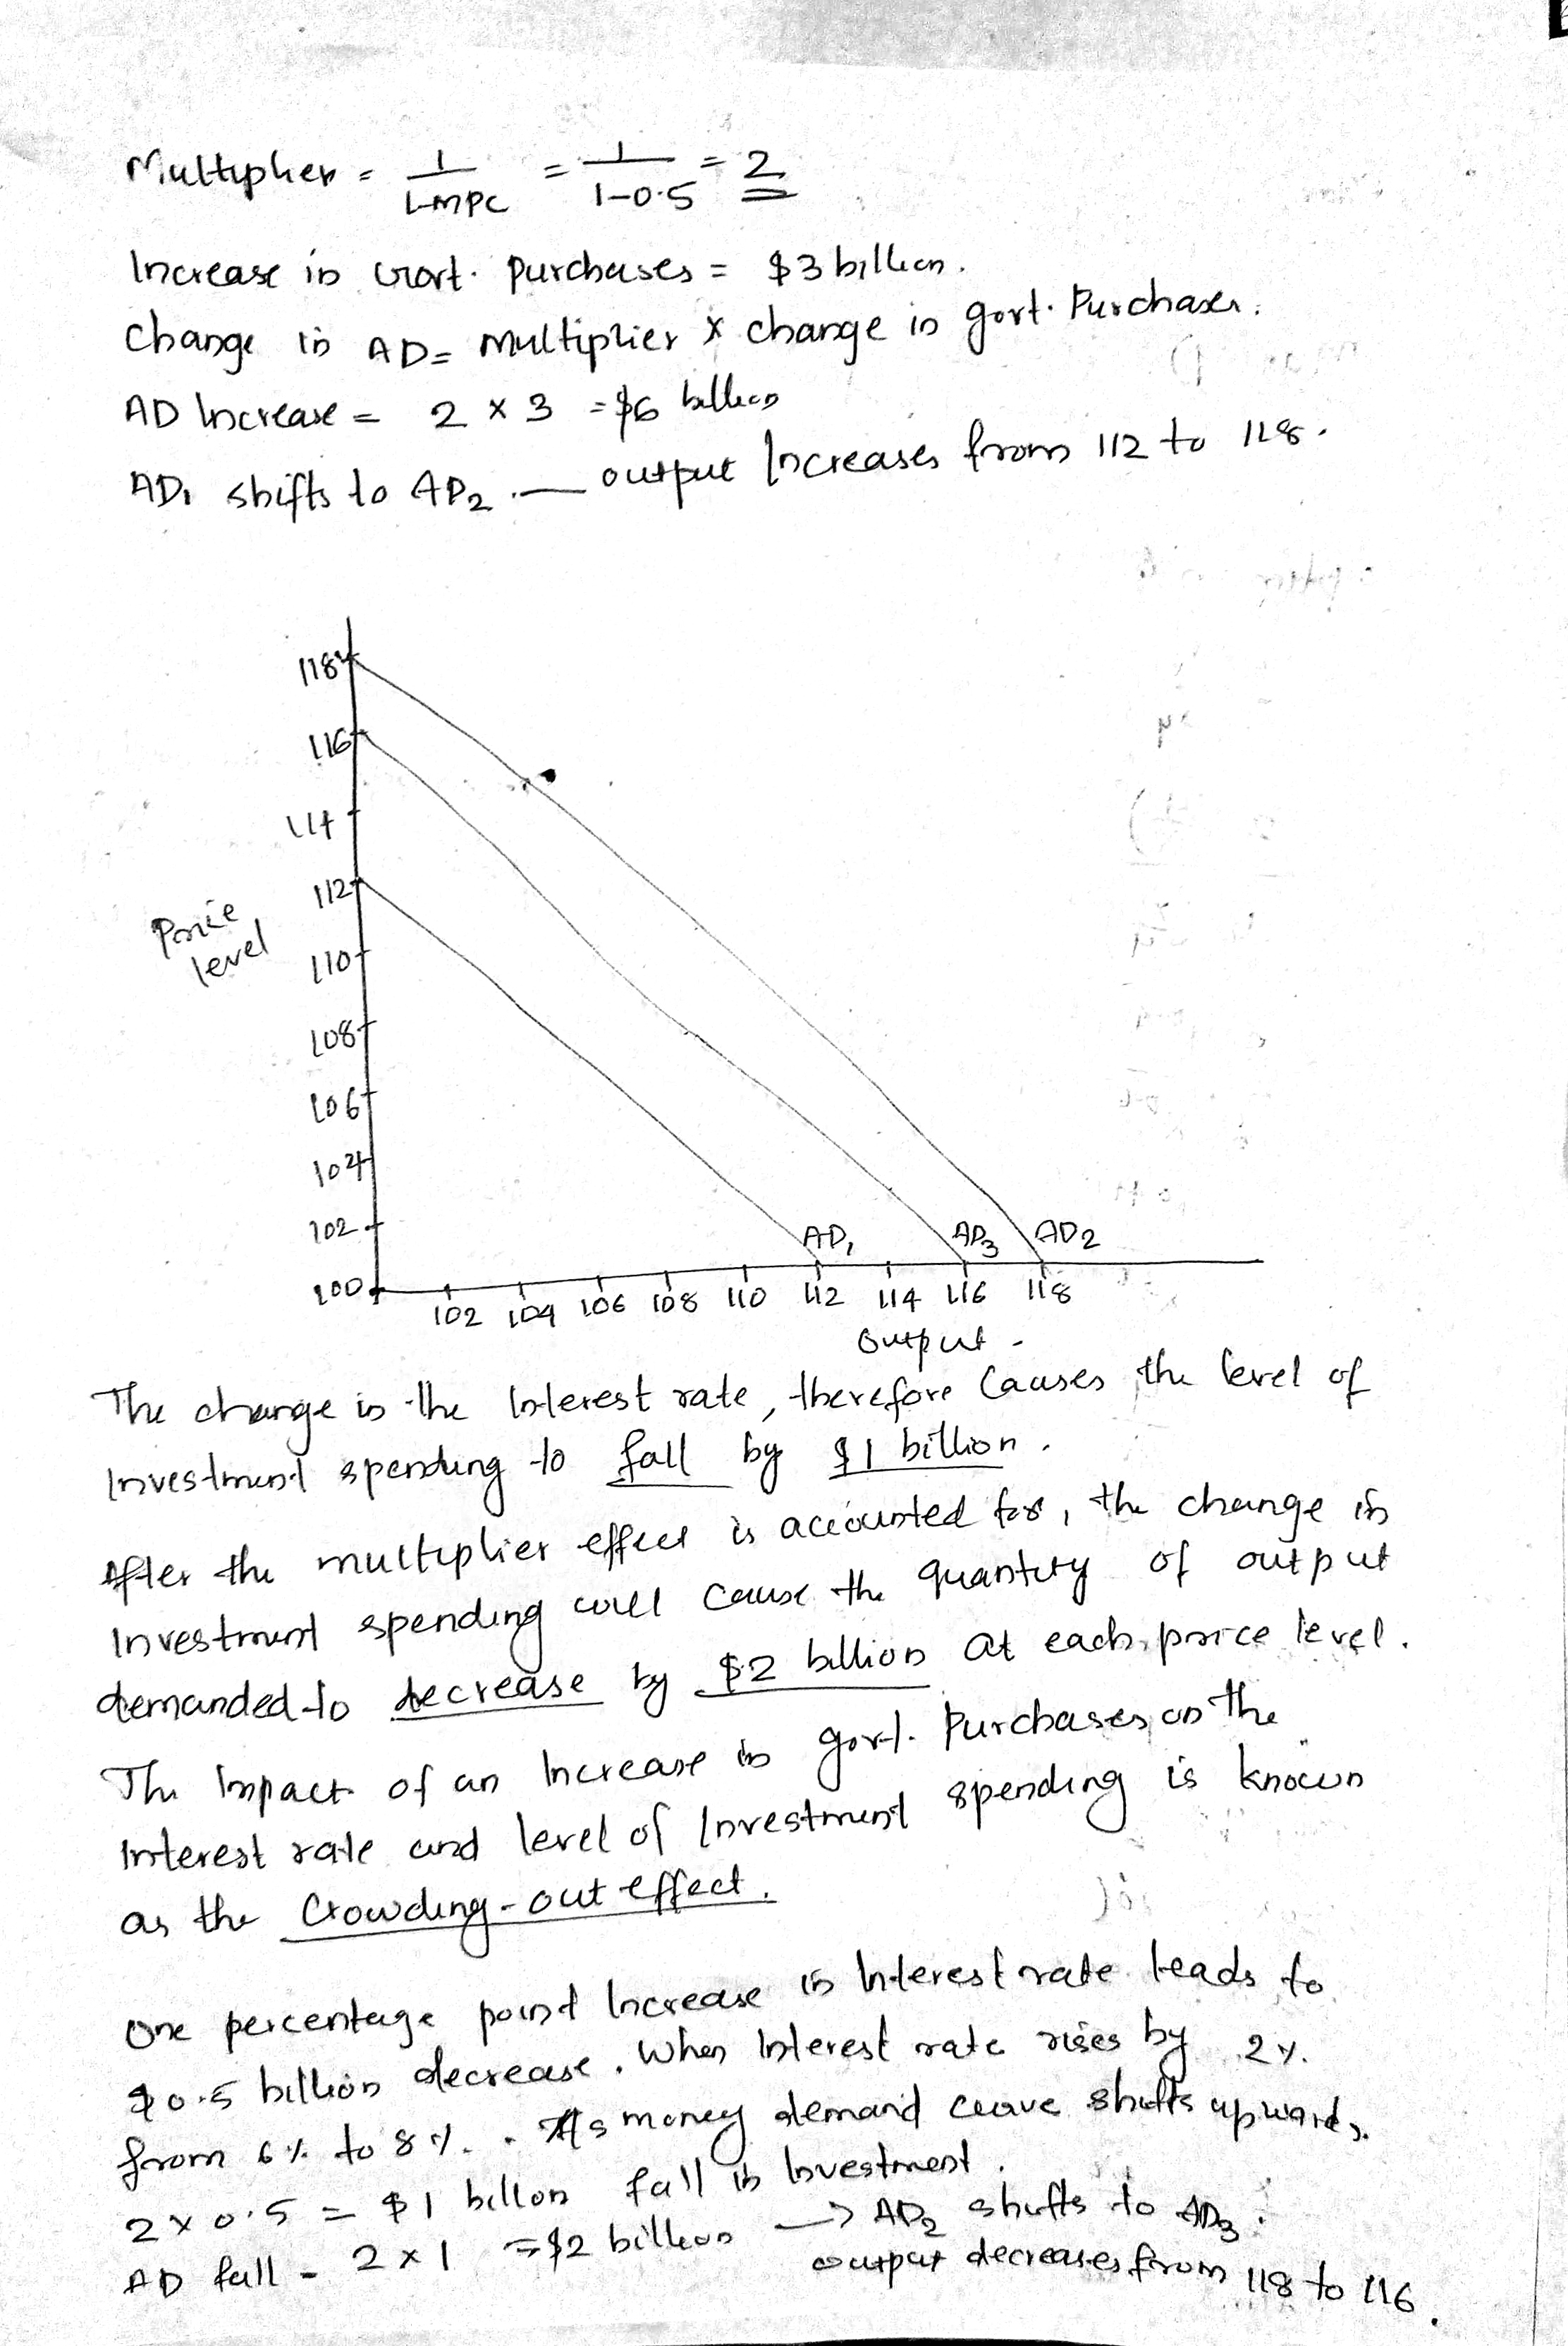 Multiplier = 1/1-MPC = 1/1-0.5 = 2
Increase in Govt. Purchases = $3 billion.
Change in AD = Multiplier x change in govt. Purchases.
AD Increase = 2 x 3 = $6 billion
AD1 shifts to AD2 . — output Increases from 112 to 118.
118
116
114
112
Price
level
110
108
106
104
102
100
AD1
AD3
AD2
102 104 106 108 110 112 114 116 118
Output
The change in the Interest rate, therefore Causes the level of
Investment spending to fall by $1 billion.
After the multiplier effect is accounted for, the change in
Investment spending will Cause the quantity of output
demanded to decrease by $2 billion at each price level.
The Impact of an Increase in govt. Purchases on the
Interest rate and level of Investment spending is known
as the Crowding-out effect.
One percentage point Increase in Interest rate leads to
$0.5 billion decrease. When Interest rate rises by 2%.
from 6% to 8%. . As money demand curve shifts upwards.
2 x 0.5 = $1 billon fall in Investment.
AD fall - 2 x 1 = $2 billion → AD2 shifts to AD3.
output decreases from 118 to 116.